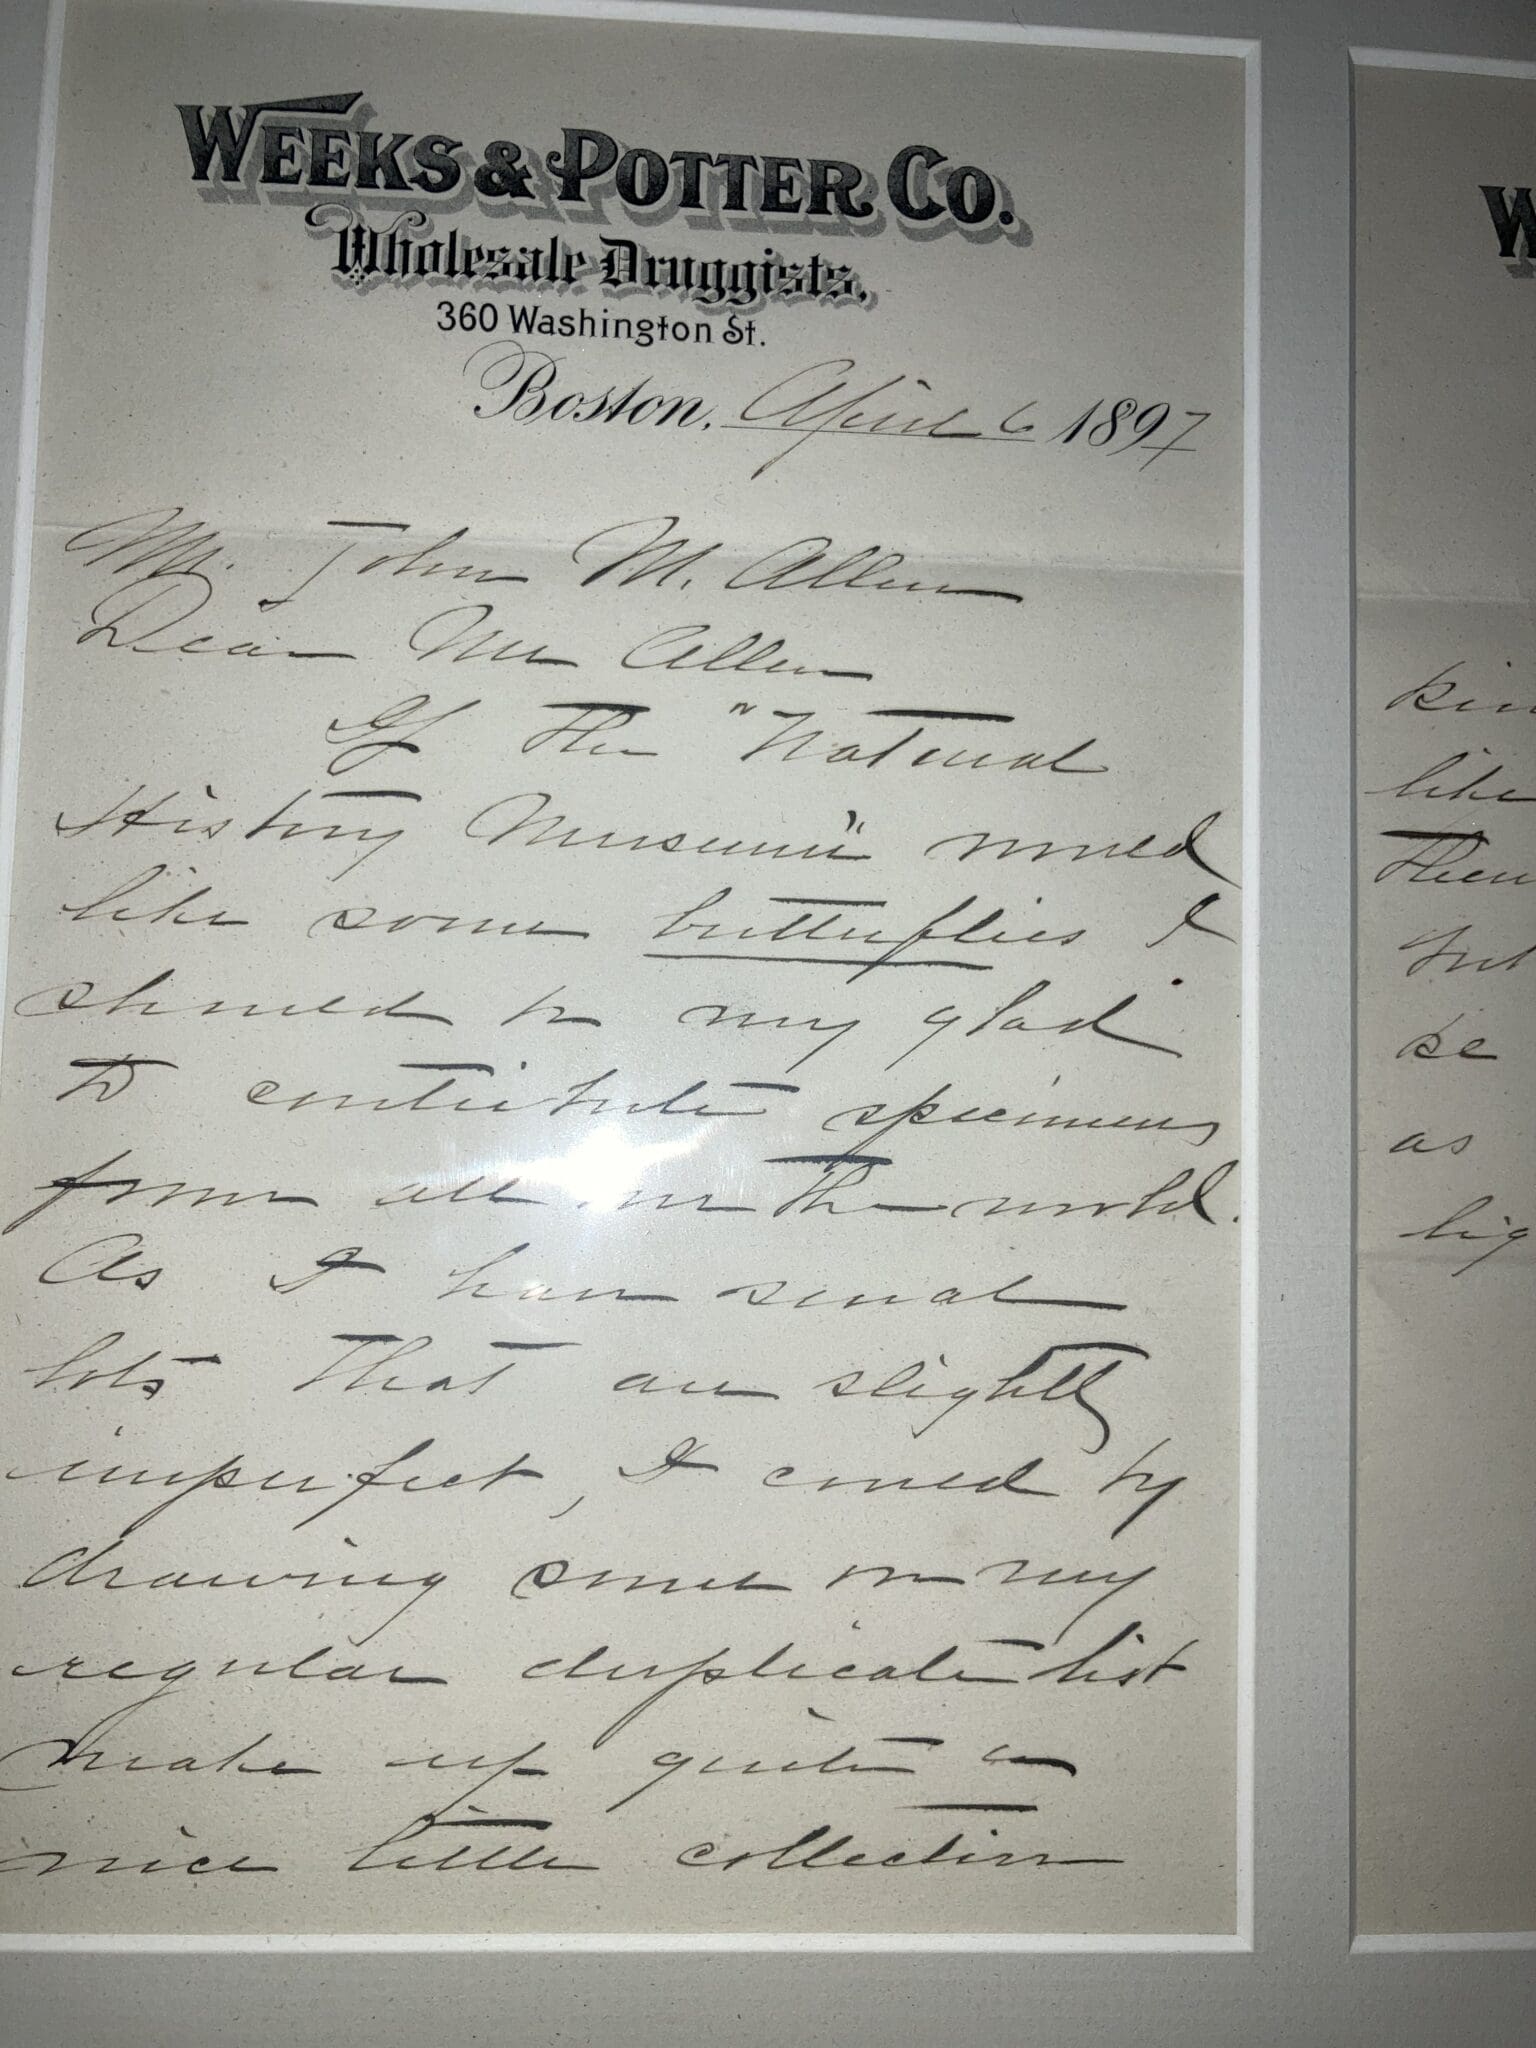 WEEKS & POTTER CO.
Wholesale Druggists,
360 Washington St.
Boston, April 6 1897
Mr. John M. Allen
Dear Mr Allen
If the "Natural
History Museum" would
like some butterflies I
should be very glad
to contribute specimens
from all over the world.
As I have several
lots that are slightly
imperfect, I could by
drawing some on my
regular duplicate list
make up quite a
nice little collection
W
kin
like
them
but
be
as
lig